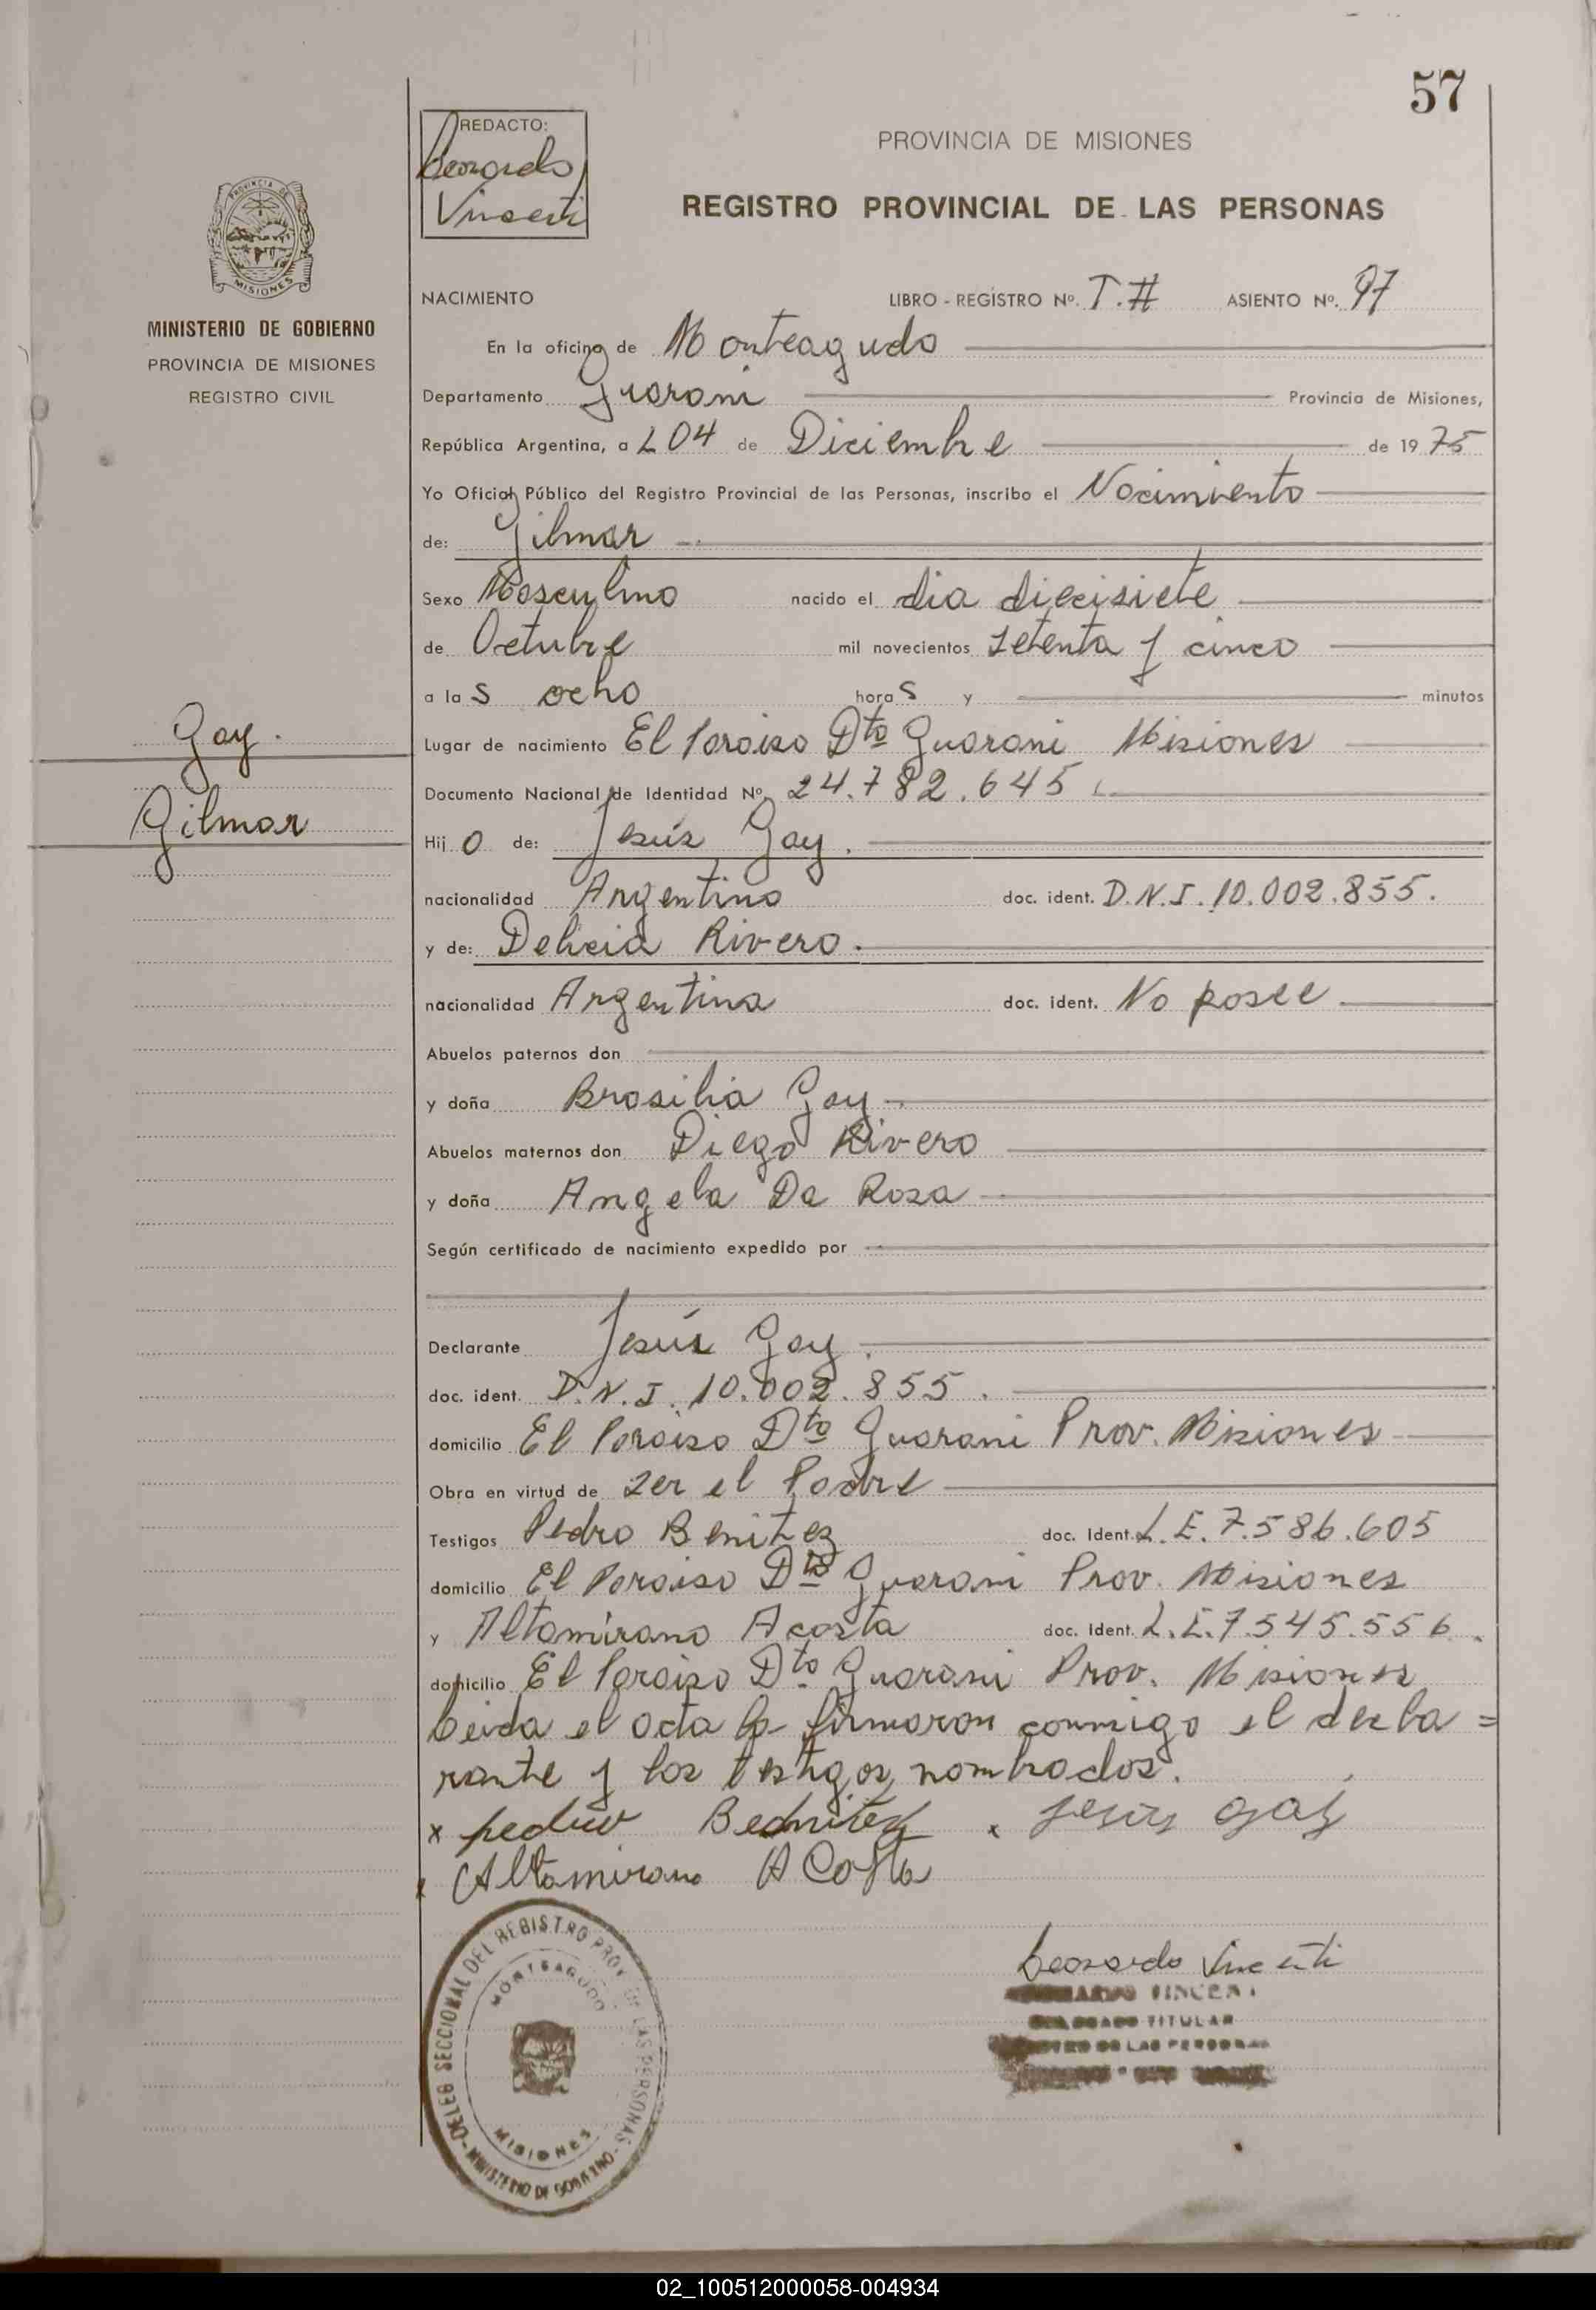 57
REDACTO:
Leonardo
Vincenti
PROVINCIA DE MISIONES
REGISTRO PROVINCIAL DE LAS PERSONAS
PROVINCIA DE
MISIONES
MINISTERIO DE GOBIERNO
PROVINCIA DE MISIONES
REGISTRO CIVIL
NACIMIENTO LIBRO - REGISTRO Nº. T.# ASIENTO Nº. 97
En la oficina de Monteagudo
Departamento Guarani Provincia de Misiones,
República Argentina, a L 04 de Diciembre de 1975
Yo Oficial Público del Registro Provincial de las Personas, inscribo el Nacimiento
de: Gilmar
Sexo Masculino nacido el dia diecisiete
de Octubre mil novecientos setenta y cinco
a las ocho horas y minutos
Gay.
Lugar de nacimiento El Paraiso Dto Guarani Misiones
Documento Nacional de Identidad Nº 24.782.645
Gilmar
Hijo de: Jesús Gay.
nacionalidad Argentino doc. ident. D.N.I. 10.002.855.
y de: Delicia Rivero.
nacionalidad Argentina doc. ident. No posee
Abuelos paternos don
y doña Brasilia Gay
Abuelos maternos don Diego Rivero
y doña Angela Da Rosa
Según certificado de nacimiento expedido por
Declarante Jesús Gay.
doc. ident. D.N.I. 10.002.855.
domicilio El Paraiso Dto Guarani Prov. Misiones
Obra en virtud de ser el Padre
Testigos Pedro Benitez doc. Ident. L.E. 7.586.605
domicilio El Paraiso Dto Guarani Prov. Misiones
y Altamirano Acosta doc. Ident. L.E. 7.545.556.
domicilio El Paraiso Dto. Guarani Prov. Misiones
Leida el acta la firmaron conmigo el decla=
rante y los testigos nombrados.
x pedro Bednitez x Jesus gay
x Altamirano A Costa
DELEG SECCIONAL DEL REGISTRO PROV. DE LAS PERSONAS
MONTEAGUDO
MISIONES
MINISTERIO DE GOBIERNO
Leonardo Vincenti
VINCENTI
TITULAR
DE LAS PERSONAS
02_100512000058-004934